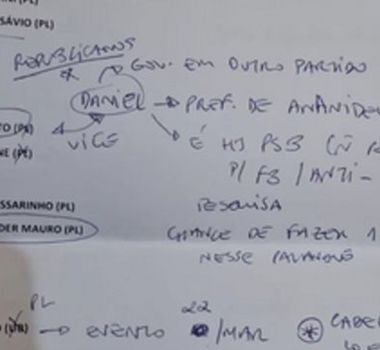 SÁVIO (PL)
REPUBLICANOS
GOV. EM OUTRO PARTIDO
DANIEL → PREF. DE ANANINDE
VICE
É HJ PSB
P/ FB / ANTI-
SSARINHO (PL)
PESQUISA
DER MAURO (PL)
CHANCE DE FAZER 1
NESSE PALANQUE
PL
22
→ EVENTO /MAR